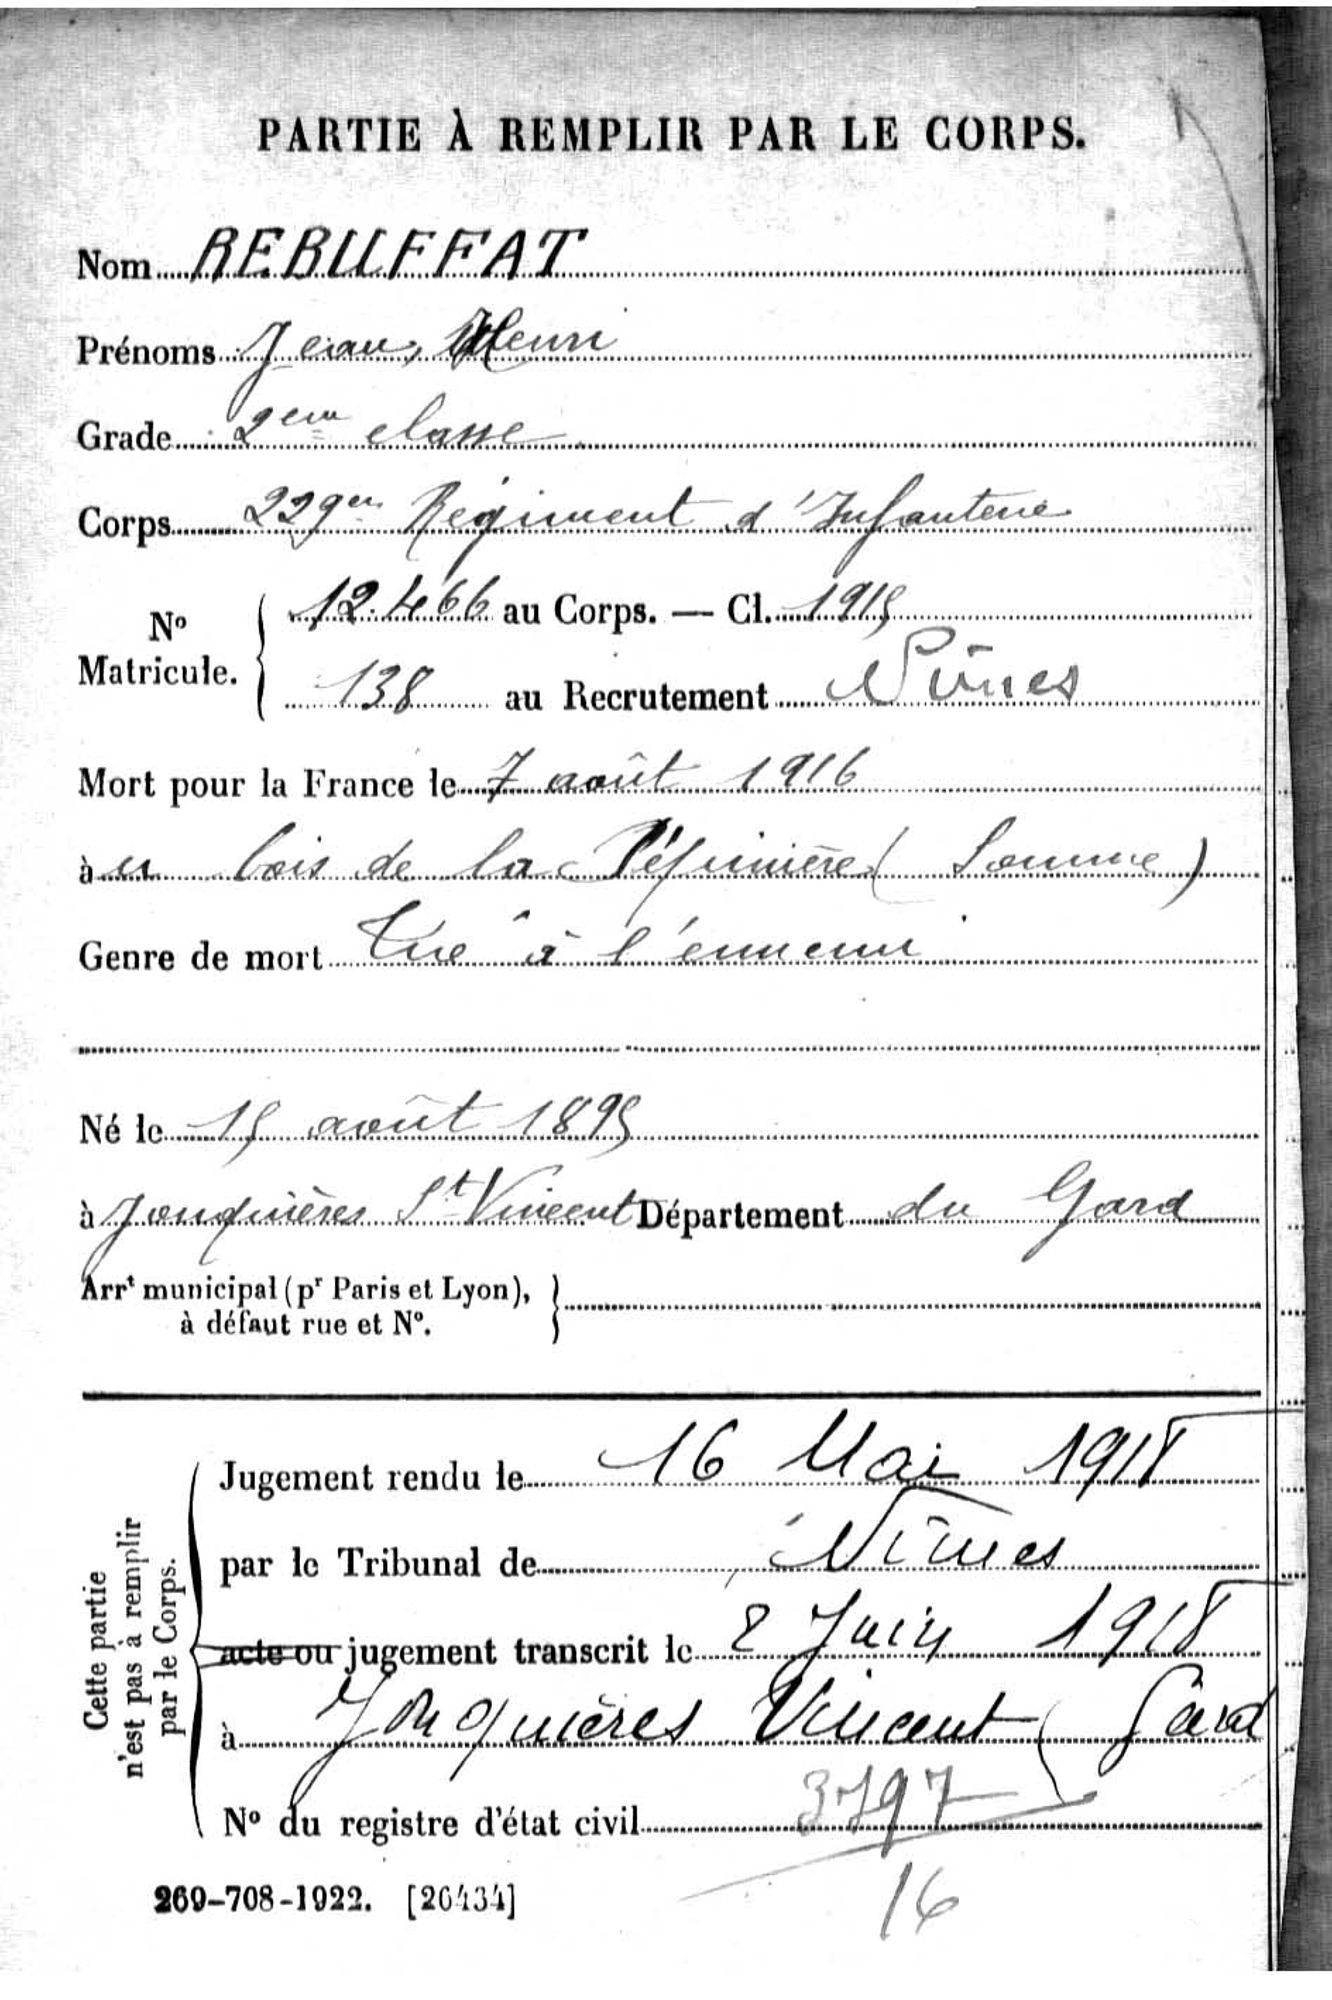 PARTIE À REMPLIR PAR LE CORPS.
Nom REBUFFAT
Prénoms Jean, Henri
Grade 2eme classe
Corps 229em Régiment d'Infanterie
No Matricule. { 12.466 au Corps. — Cl. 1915
138 au Recrutement Nîmes
Mort pour la France le 7 août 1916
à u bois de la Pépinière (Somme)
Genre de mort Tué à l'ennemi
Né le 15 août 1895
à Jonquières St Vincent Département du Gard
Arrt municipal (pr Paris et Lyon),
à défaut rue et No. }
Cette partie
n'est pas à remplir
par le Corps.
Jugement rendu le 16 Mai 1918
par le Tribunal de Nîmes
acte ou jugement transcrit le 2 Juin 1918
à Jonquières Vincent (Gard
No du registre d'état civil 3797
16
269-708-1922. [26434]